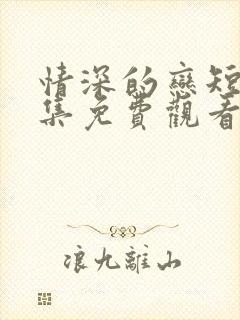 情深的戀短
集免費觀看
浪九離山